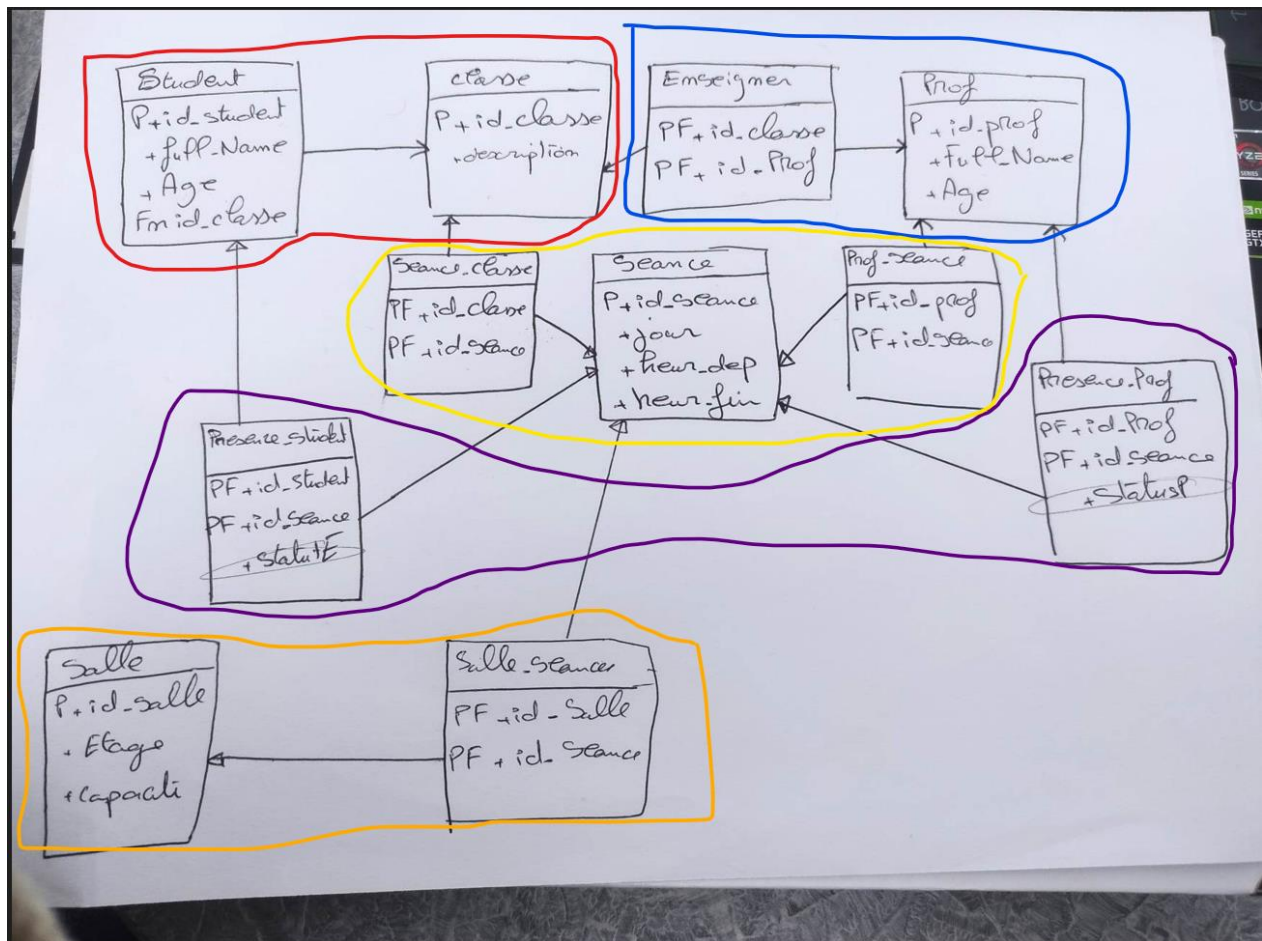 Student
P+id_student
+full_Name
+Age
id_classe
classe
P+id_classe
+description
Enseigner
PF+id_classe
PF+id_Prof
Prof
P+id_prof
+Full_Name
+Age
Seance_classe
PF+id_classe
PF+id_seance
Seance
P+id_seance
+jour
+heur_dep
+heur_fin
Prof_seance
PF+id_prof
PF+id_seance
Presence_student
PF+id_student
PF+id_seance
+statutE
Presence_Prof
PF+id_Prof
PF+id_seance
+StatusP
Salle
P+id_salle
+Etage
+capaciti
Salle_seances
PF+id_Salle
PF+id_Seance